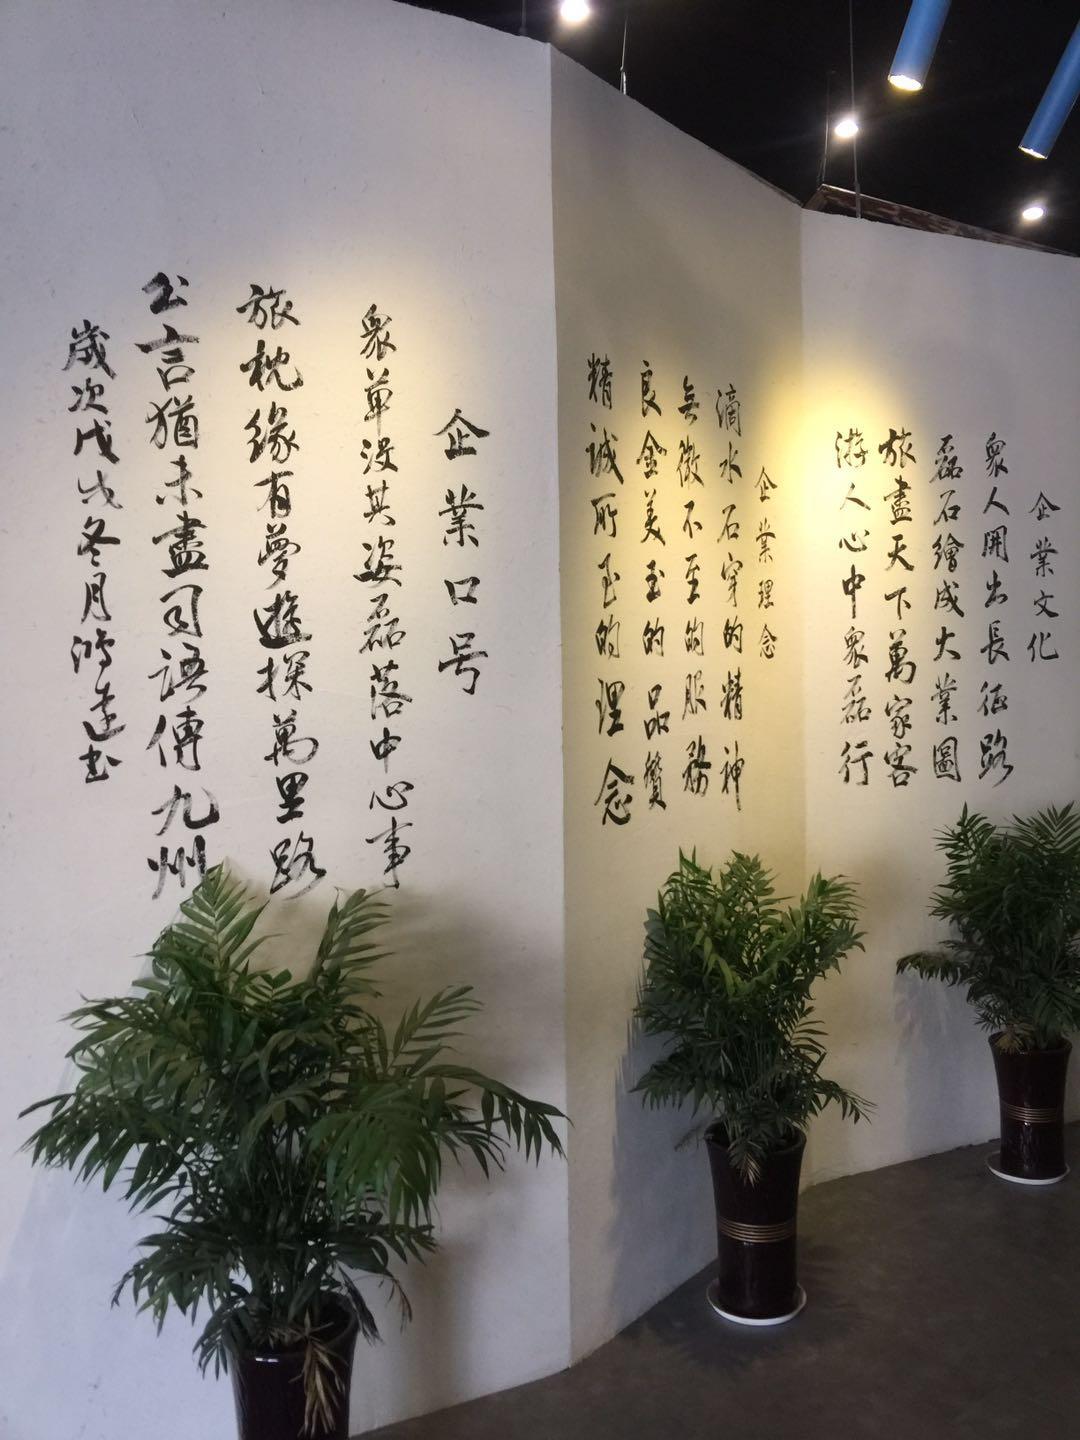 企業文化
衆人開出長征路
磊石繪成大業圖
旅盡天下萬家客
游人心中衆磊行
企業理念
滴水石穿的精神
無微不至的服務
良金美玉的品質
精誠所至的理念
企業口号
衆草没其姿磊落中心事
旅枕緣有夢遊探萬里路
公言猶未盡司語傳九州
歲次戊戌冬月鴻遠书